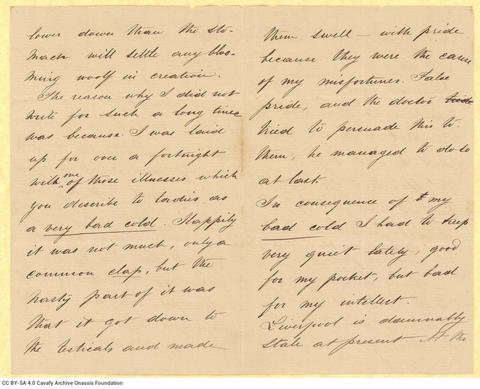 lower down than the sto-
mach will settle any bloo-
ming woolf in creation.
The reason why I did not
write for such a long time
was because I was laid
up for over a fortnight
with one of those illnesses which
you describe to ladies as
a very bad cold. Happily
it was not much, only a
common clap, but the
nasty part of it was
that it got down to
the testicals and made
them swell – with pride
because they were the cause
of my misfortunes. False
pride, and the doctor
tried to persuade this to
them, he managed to do so
at last.
In consequence of my
bad cold I had to keep
very quiet lately, good
for my pocket, but bad
for my intellect.
Liverpool is damnably
stale at present. At the
CC BY-SA 4.0 Cavafy Archive Onassis Foundation